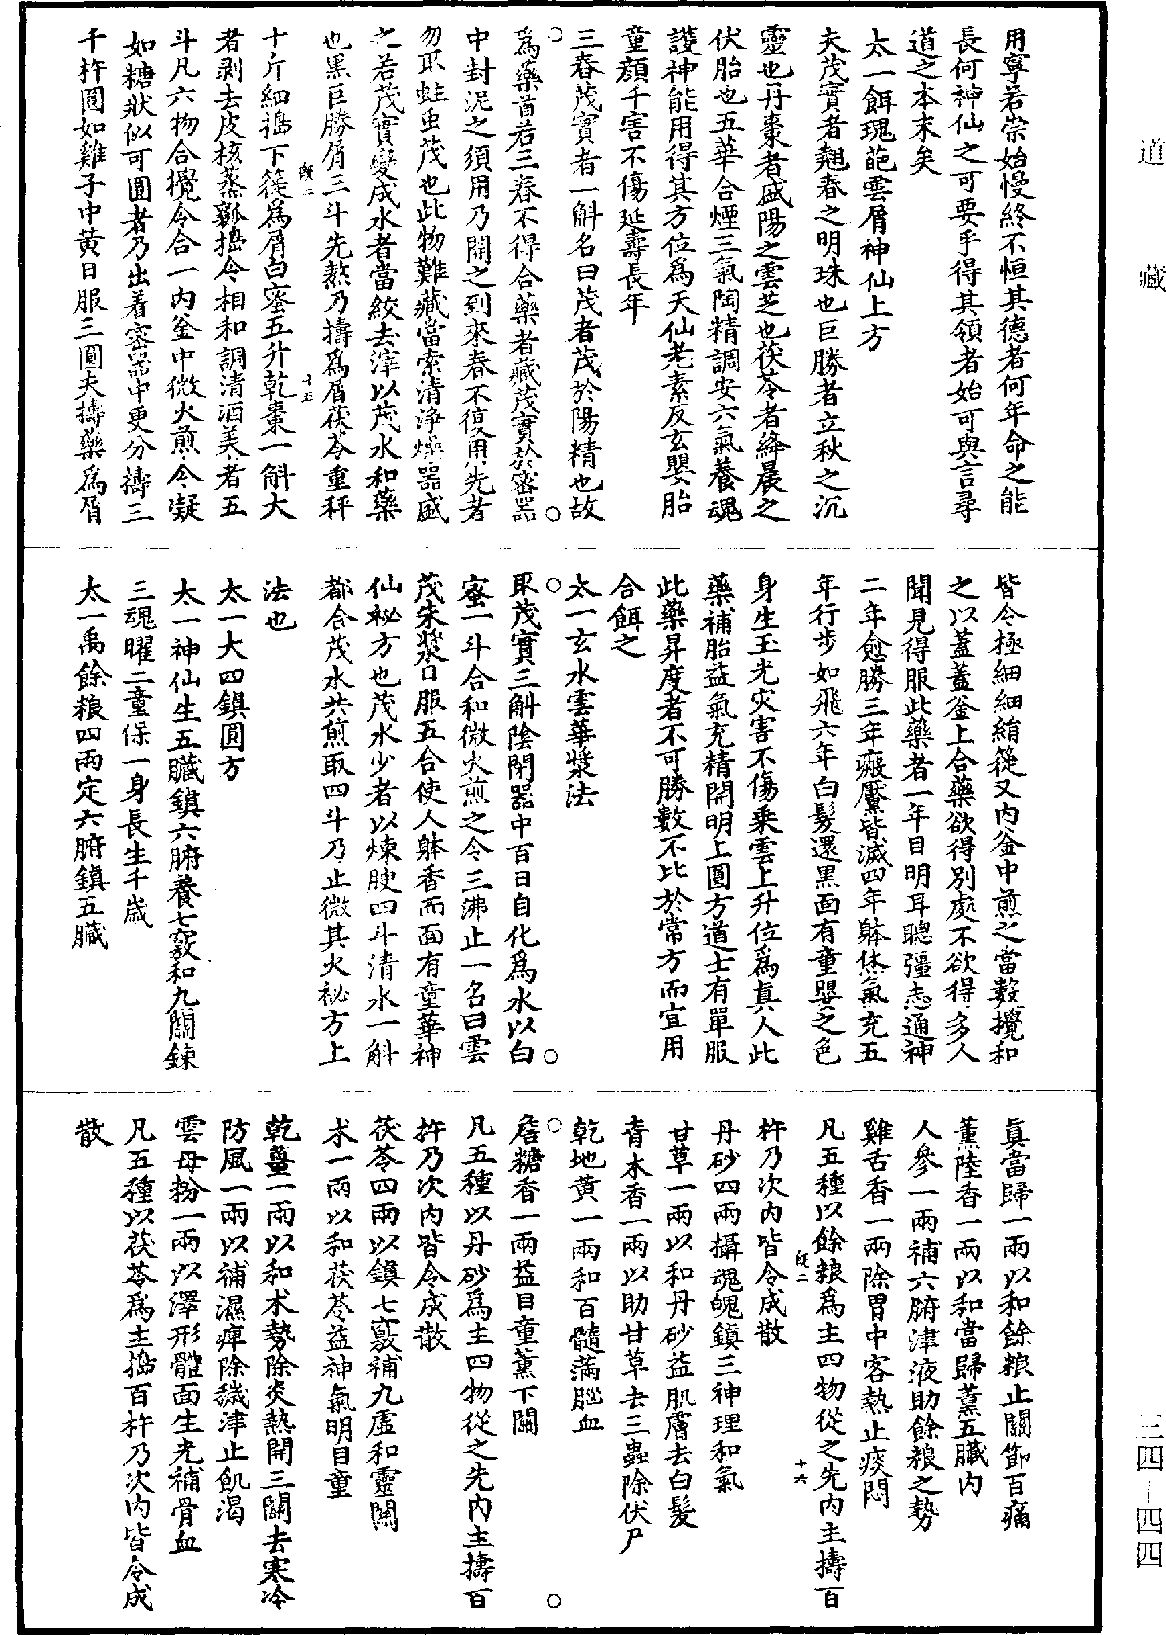 道藏
用寧若崇始慢終不恒其德者何年命之能
長何神仙之可要乎得其領者始可與言尋
道之本末矣
太一餌瑰葩雲屑神仙上方
夫茂實者翹春之明珠也巨勝者立秋之沉
靈也丹棗者盛陽之雲芝也茯苓者絳晨之
伏胎也五華合煙三氣陶精調安六氣養魂
護神能用得其方位為天仙老素反玄嬰胎
童顏千害不傷延壽長年
三春茂實者一斛名曰茂者茂於陽精也故
為藥首若三春不得合藥者藏茂實於密器
中封泥之須用乃開之到來春不復用先者
勿取蛀虫茂也此物難藏當索清淨燥器盛
之若茂實變成水者當絞去滓以茂水和藥
也黑巨勝屑三斗先熬乃擣為屑茯苓重秤
段二
十五
十斤細擣下簁為屑白蜜五升乾棗一斛大
者剥去皮核蒸瓤搗令相和調清酒美者五
斗凡六物合攪令合一內釜中微火煎令凝
如糖狀似可圓者乃出着密器中更分擣三
千杵圓如雞子中黃日服三圓夫擣藥為屑
皆令極細細絹簁又內釜中煎之當數攪和
之以蓋蓋釜上合藥欲得別處不欲得多人
聞見得服此藥者一年目明耳聰彊志通神
二年愈勝三年瘢黶皆滅四年躰休氣充五
年行步如飛六年白髮還黑面有童嬰之色
身生玉光灾害不傷乘雲上升位為真人此
藥補胎益氣充精開明上圓方道士有單服
此藥昇度者不可勝數不比於常方而宜用
合餌之
太一玄水雲華漿法
取茂實三斛陰閉器中百日自化為水以白
蜜一斗合和微火煎之令三沸止一名曰雲
茂朱漿口服五合使人躰香而面有童華神
仙祕方也茂水少者以煉腴四斗清水一斛
都合茂水共煎取四斗乃止微其火祕方上
法也
太一大四鎮圓方
太一神仙生五臟鎮六腑養七竅和九關鍊
三魂曜二童保一身長生千歲
太一禹餘粮四兩定六腑鎮五臟
真當歸一兩以和餘粮止關節百痛
薰陸香一兩以和當歸薰五臟內
人參一兩補六腑津液助餘粮之勢
雞舌香一兩除胃中客熱止痰悶
凡五種以餘粮為主四物從之先內主擣百
段二
十六
杵乃次內皆令成散
丹砂四兩攝魂魄鎮三神理和氣
甘草一兩以和丹砂益肌膚去白髮
青木香一兩以助甘草去三蟲除伏尸
乾地黃一兩和百髓滿腦血
詹糖香一兩益目童薰下關
凡五種以丹砂為主四物從之先內主擣百
杵乃次內皆令成散
茯苓四兩以鎮七竅補九虛和靈關
术一兩以和茯苓益神氣明目童
乾薑一兩以和术勢除炎熱開三關去寒冷
防風一兩以補濕痺除穢津止飢渴
雲母粉一兩以澤形體面生光補骨血
凡五種以茯苓為主搗百杵乃次內皆令成
散
三四—四四